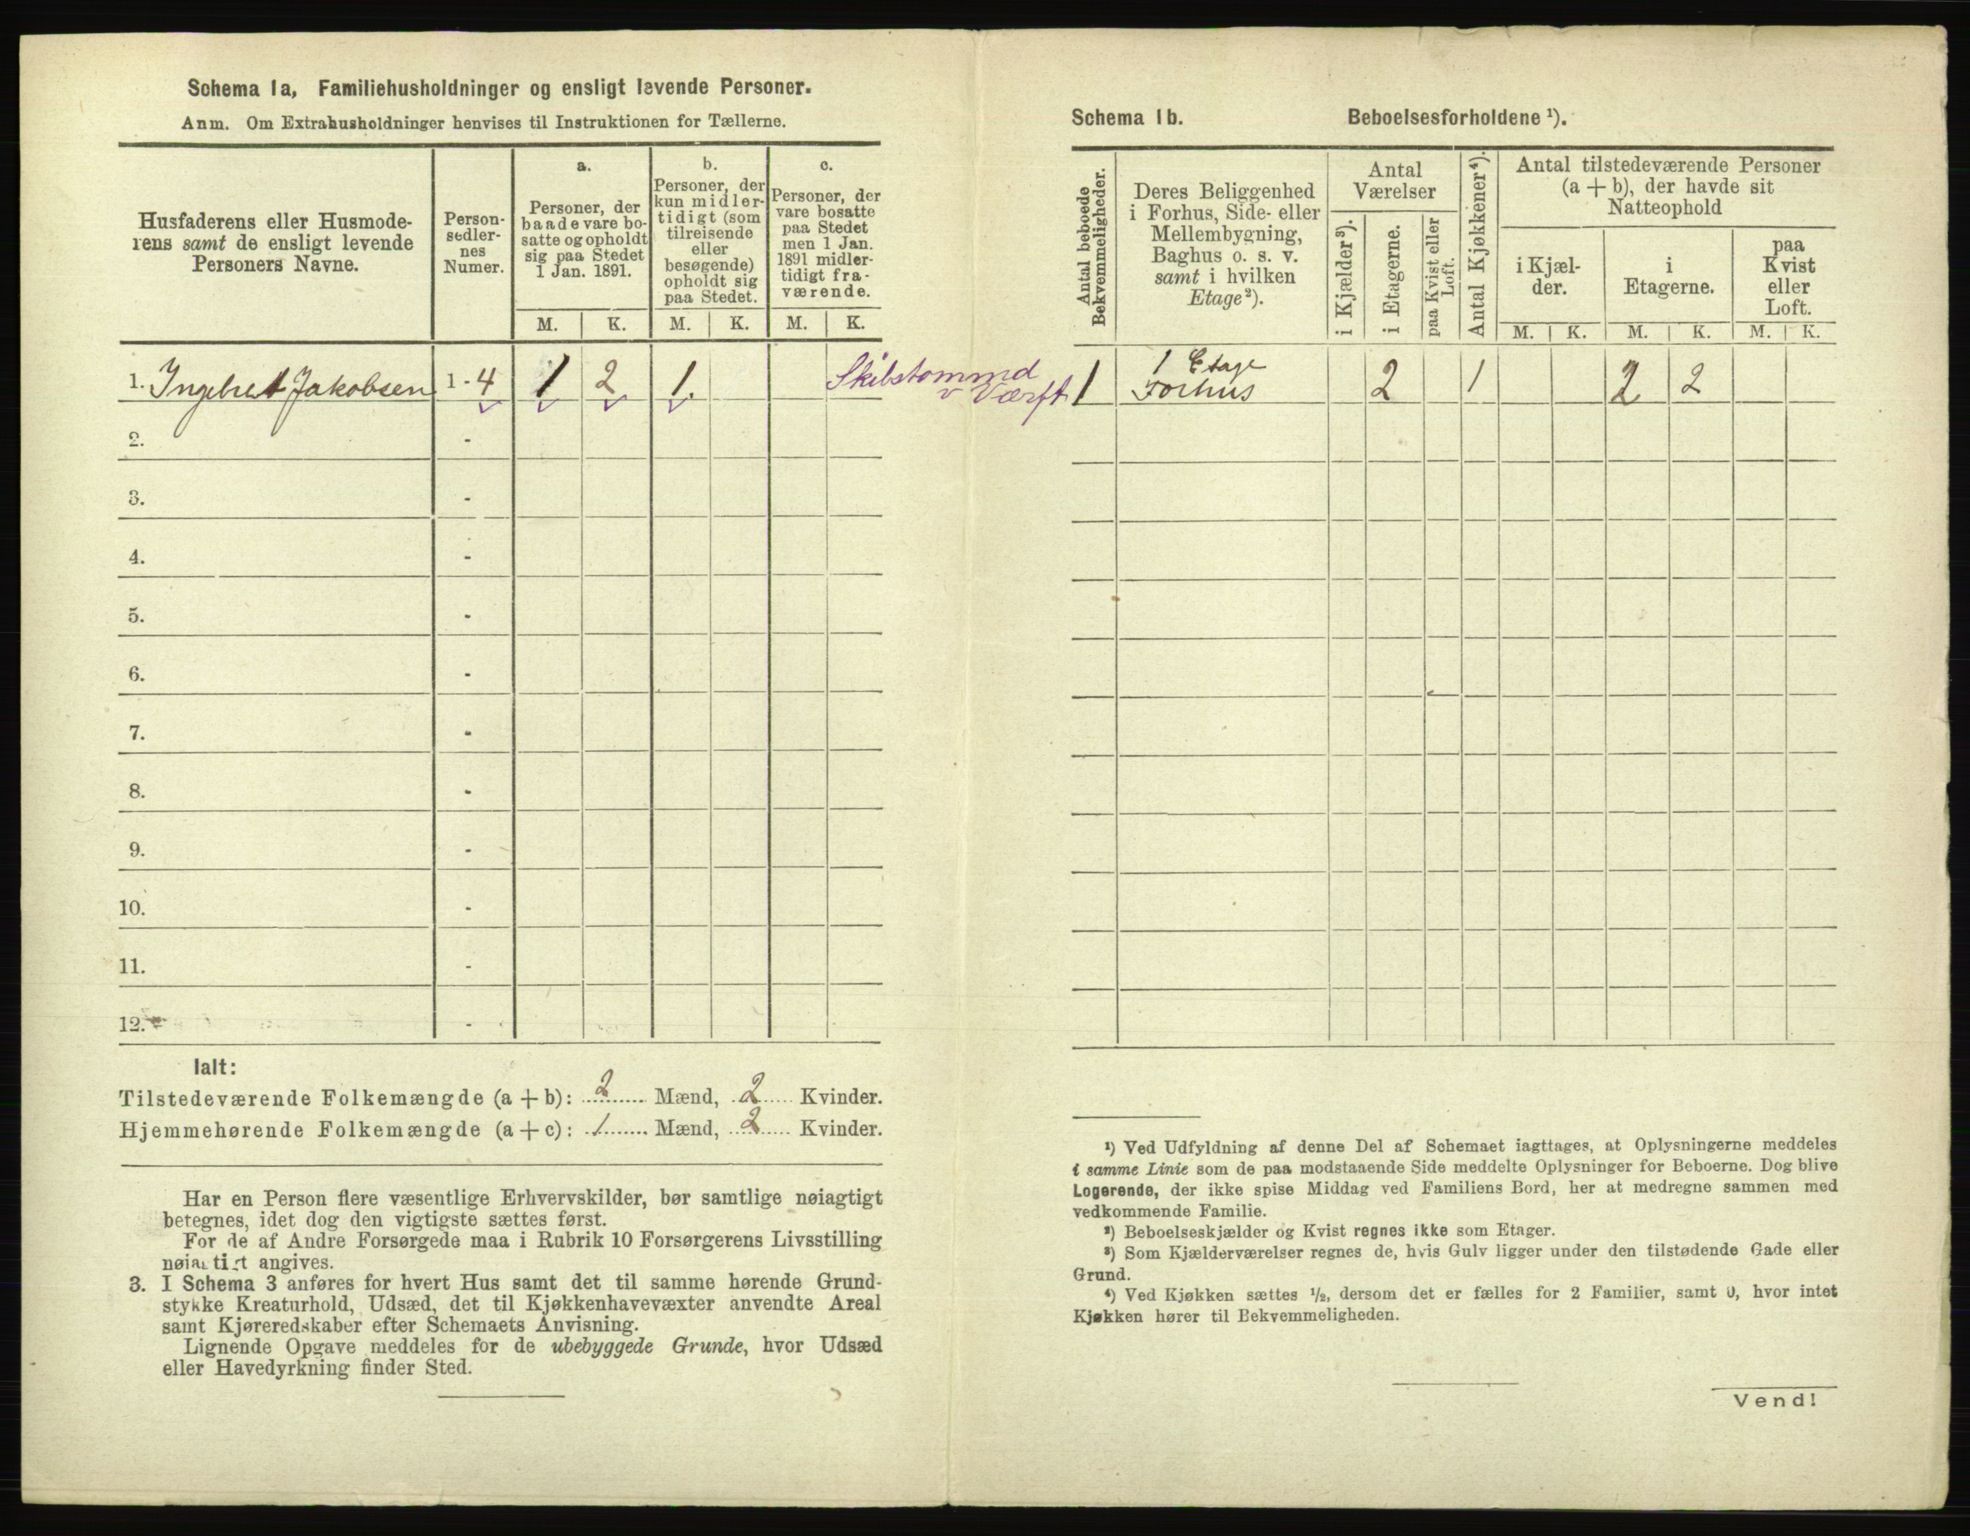 Schema 1a, Familiehusholdninger og ensligt levende Personer.
Anm. Om Extrahusholdninger henvises til Instruktionen for Tællerne.
Husfaderens eller Husmode-
rens samt de ensligt levende
Personers Navne.
Person-
sedler-
nes
Numer.
a.
Personer, der
baade vare bo-
satte og opholdt
sig paa Stedet
1 Jan. 1891.
b.
Personer, der
kun midler-
tidigt (som
tilreisende
eller
besøgende)
opholdt sig
paa Stedet.
c.
Personer, der
vare bosatte
paa Stedet
men 1 Jan.
1891 midler-
tidigt fra-
værende.
M. K. M. K. M. K.
1. Ingebret Jakobsen 1 - 4 1 2 1. Skibstømmd
v Værft
2. -
3. -
4. -
5. -
6. -
7. -
8. -
9. -
10. -
11. -
12. -
Ialt:
Tilstedeværende Folkemængde (a + b): 2 Mænd, 2 Kvinder.
Hjemmehørende Folkemængde (a + c): 1 Mænd, 2 Kvinder.
Har en Person flere væsentlige Erhvervskilder, bør samtlige nøiagtigt
betegnes, idet dog den vigtigste sættes først.
For de af Andre Forsørgede maa i Rubrik 10 Forsørgerens Livsstilling
nøiagtigt angives.
3. I Schema 3 anføres for hvert Hus samt det til samme hørende Grund-
stykke Kreaturhold, Udsæd, det til Kjøkkenhavevæxter anvendte Areal
samt Kjøreredskaber efter Schemaets Anvisning.
Lignende Opgave meddeles for de ubebyggede Grunde, hvor Udsæd
eller Havedyrkning finder Sted.
Schema 1b. Beboelsesforholdene ¹).
Antal beboede
Bekvemmeligheder.
Deres Beliggenhed
i Forhus, Side- eller
Mellembygning,
Baghus o. s. v.
samt i hvilken
Etage ²).
Antal
Værelser
i Kjælder ³).
i Etagerne.
paa Kvist eller
Loft.
Antal Kjøkkener ⁴).
Antal tilstedeværende Personer
(a + b), der havde sit
Natteophold
i Kjæl-
der.
i
Etagerne.
paa
Kvist
eller
Loft.
M. K. M. K. M. K.
1 1 Etage
Forhus 2 1 2 2
¹) Ved Udfyldning af denne Del af Schemaet iagttages, at Oplysningerne meddeles
i samme Linie som de paa modstaaende Side meddelte Oplysninger for Beboerne. Dog blive
Logerende, der ikke spise Middag ved Familiens Bord, her at medregne sammen med
vedkommende Familie.
²) Beboelseskjælder og Kvist regnes ikke som Etager.
³) Som Kjælderværelser regnes de, hvis Gulv ligger under den tilstødende Gade eller
Grund.
⁴) Ved Kjøkken sættes ½, dersom det er fælles for 2 Familier, samt 0, hvor intet
Kjøkken hører til Bekvemmeligheden.
Vend!